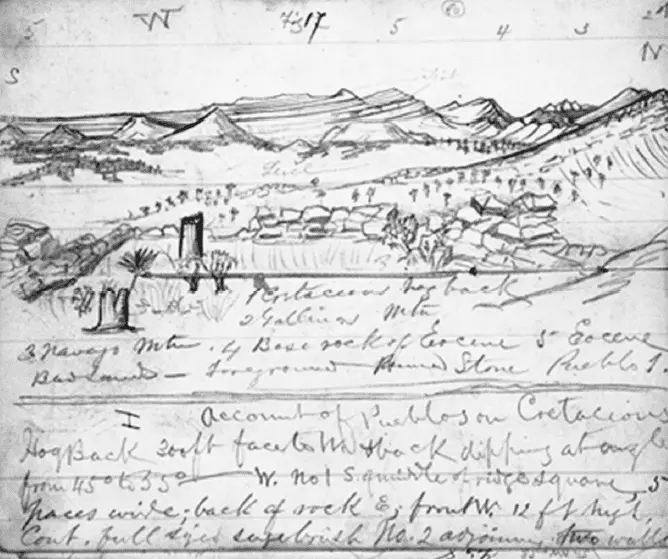 W Fig 17 5 4 3 2
S N
1 Cretaceous hogback
2 Gallinas Mtn
3 Navajo Mtn. 4 Base rock of Eocene 5 Eocene
Bad Lands — foreground — Ruined Stone Pueblo 1
I Account of Pueblos on Cretaceous
Hog Back 300 ft face to W & back dipping at ang
from 45° to 55° — W. No 1 S. middle of ridge square, 5
paces wide; back of rock E; front W. 12 ft high,
Cont. full size sage brush No. 2 adjoining two walls